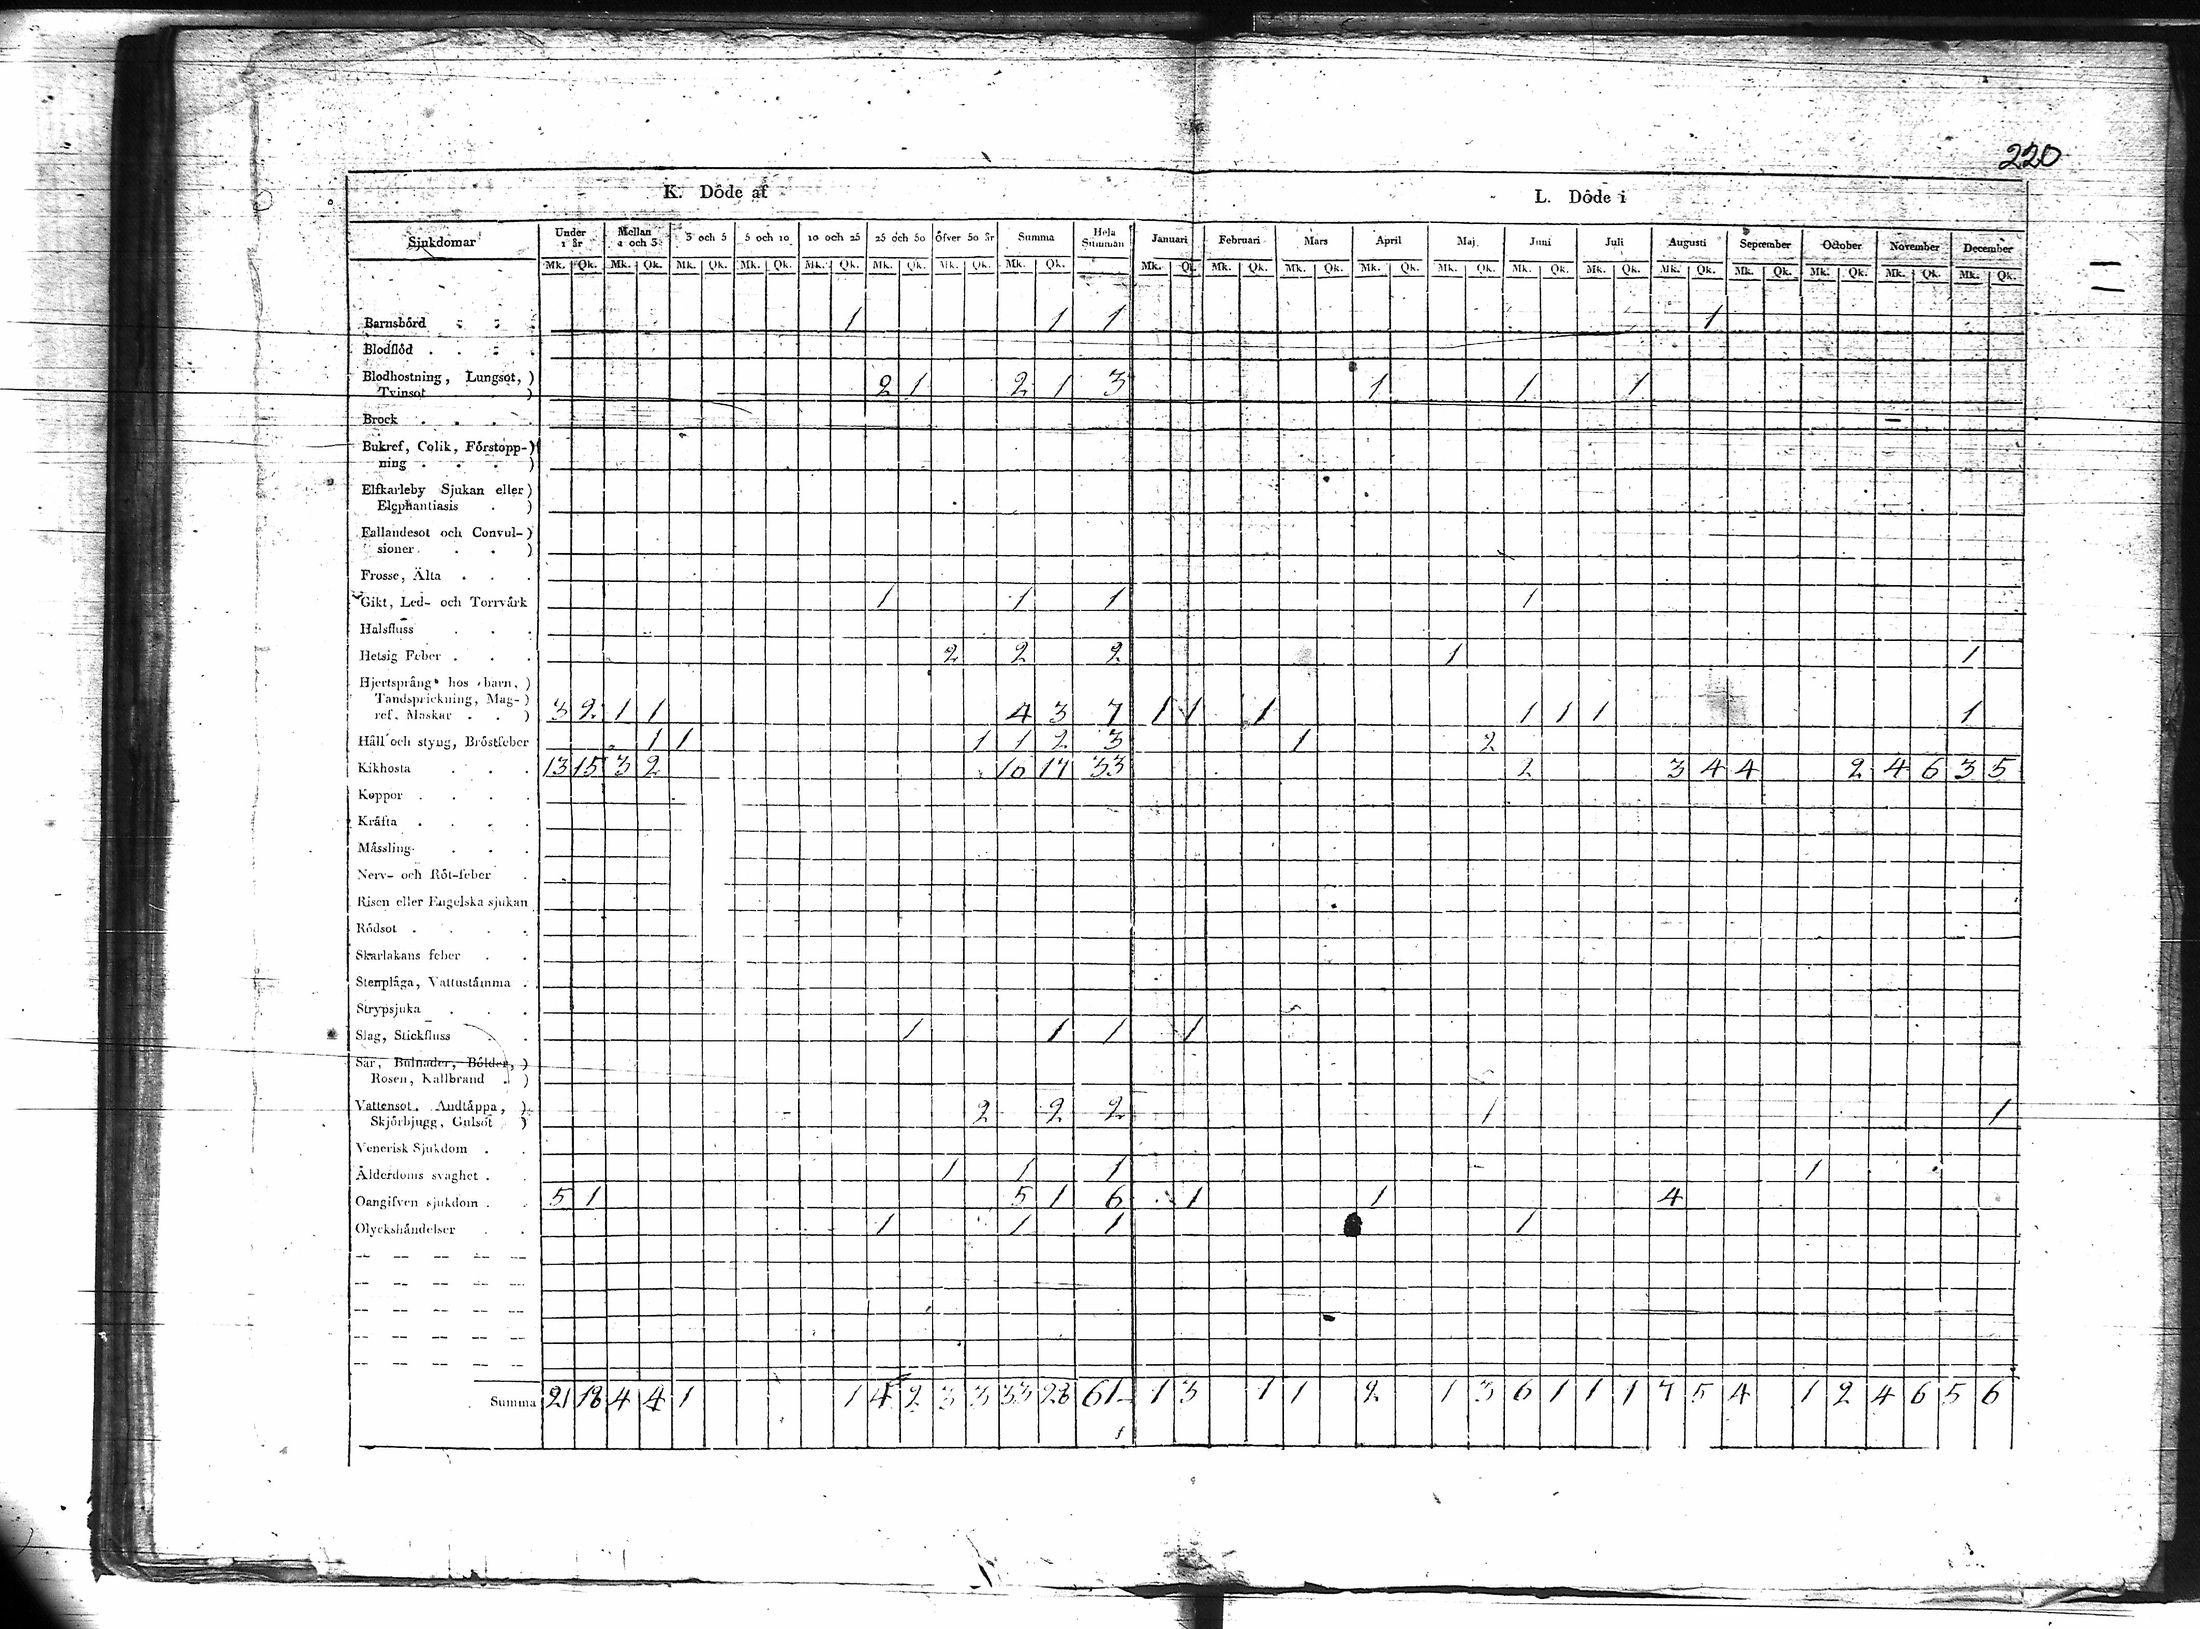 220
K. Döde af L. Döde i
Sjukdomar Under 1 år Mellan 1 och 3 3 och 5 5 och 10 10 och 25 25 och 50 Öfver 50 år Summa Hela Summan Januari Februari Mars April Maj Juni Juli Augusti September October November December
Mk. Qk. Mk. Qk. Mk. Qk. Mk. Qk. Mk. Qk. Mk. Qk. Mk. Qk. Mk. Qk. Mk. Qk. Mk. Qk. Mk. Qk. Mk. Qk. Mk. Qk. Mk. Qk. Mk. Qk. Mk. Qk. Mk. Qk. Mk. Qk. Mk. Qk. Mk. Qk.
Barnsbörd 1 1 1 1
Blodflöd
Blodhostning, Lungsot, )
Tvinsot ) 2 1 2 1 3 1 1 1
Brock
Bukref, Colik, Förstopp-)
ning )
Elfkarleby Sjukan eller )
Elephantiasis )
Fallandesot och Convul-)
sioner )
Frosse, Älta
Gikt, Led- och Torrvärk 1 1 1 1
Halsfluss
Hetsig Feber 2 2 2 1 1
Hjertsprång hos barn, )
Tandsprickning, Mag-)
ref, Maskar ) 3 2 1 1 4 3 7 1 1 1 1 1 1 1
Håll och styng, Bröstfeber 1 1 1 1 2 3 1 2
Kikhosta 13 15 3 2 16 17 33 2 3 4 4 2 4 6 3 5
Koppor
Kräfta
Mässling
Nerv- och Röt-feber
Risen eller Engelska sjukan
Rödsot
Skarlakans feber
Stenplåga, Vattustämma
Strypsjuka
Slag, Stickfluss 1 1 1 1
Sår, Bulnader, Bölder, )
Rosen, Kallbrand )
Vattensot, Andtäppa, )
Skjörbjugg, Gulsot ) 2 2 2 1 1
Venerisk Sjukdom
Ålderdoms svaghet 1 1 1 1
Oangifven sjukdom 5 1 5 1 6 1 1 4
Olyckshändelser 1 1 1 1
Summa 21 18 4 4 1 1 4 2 3 3 33 28 61 1 3 1 1 2 1 3 6 1 1 1 7 5 4 1 2 4 6 5 6